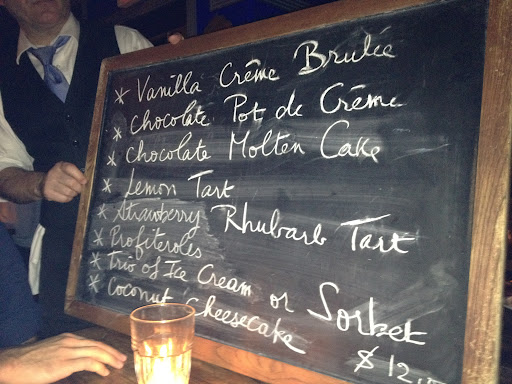 * Vanilla Crême Brulée
* Chocolate Pot de Crême
* Chocolate Molten Cake
* Lemon Tart
* Strawberry Rhubarb Tart
* Profiteroles
* Trio of Ice Cream or Sorbet
* Coconut Cheesecake
$12